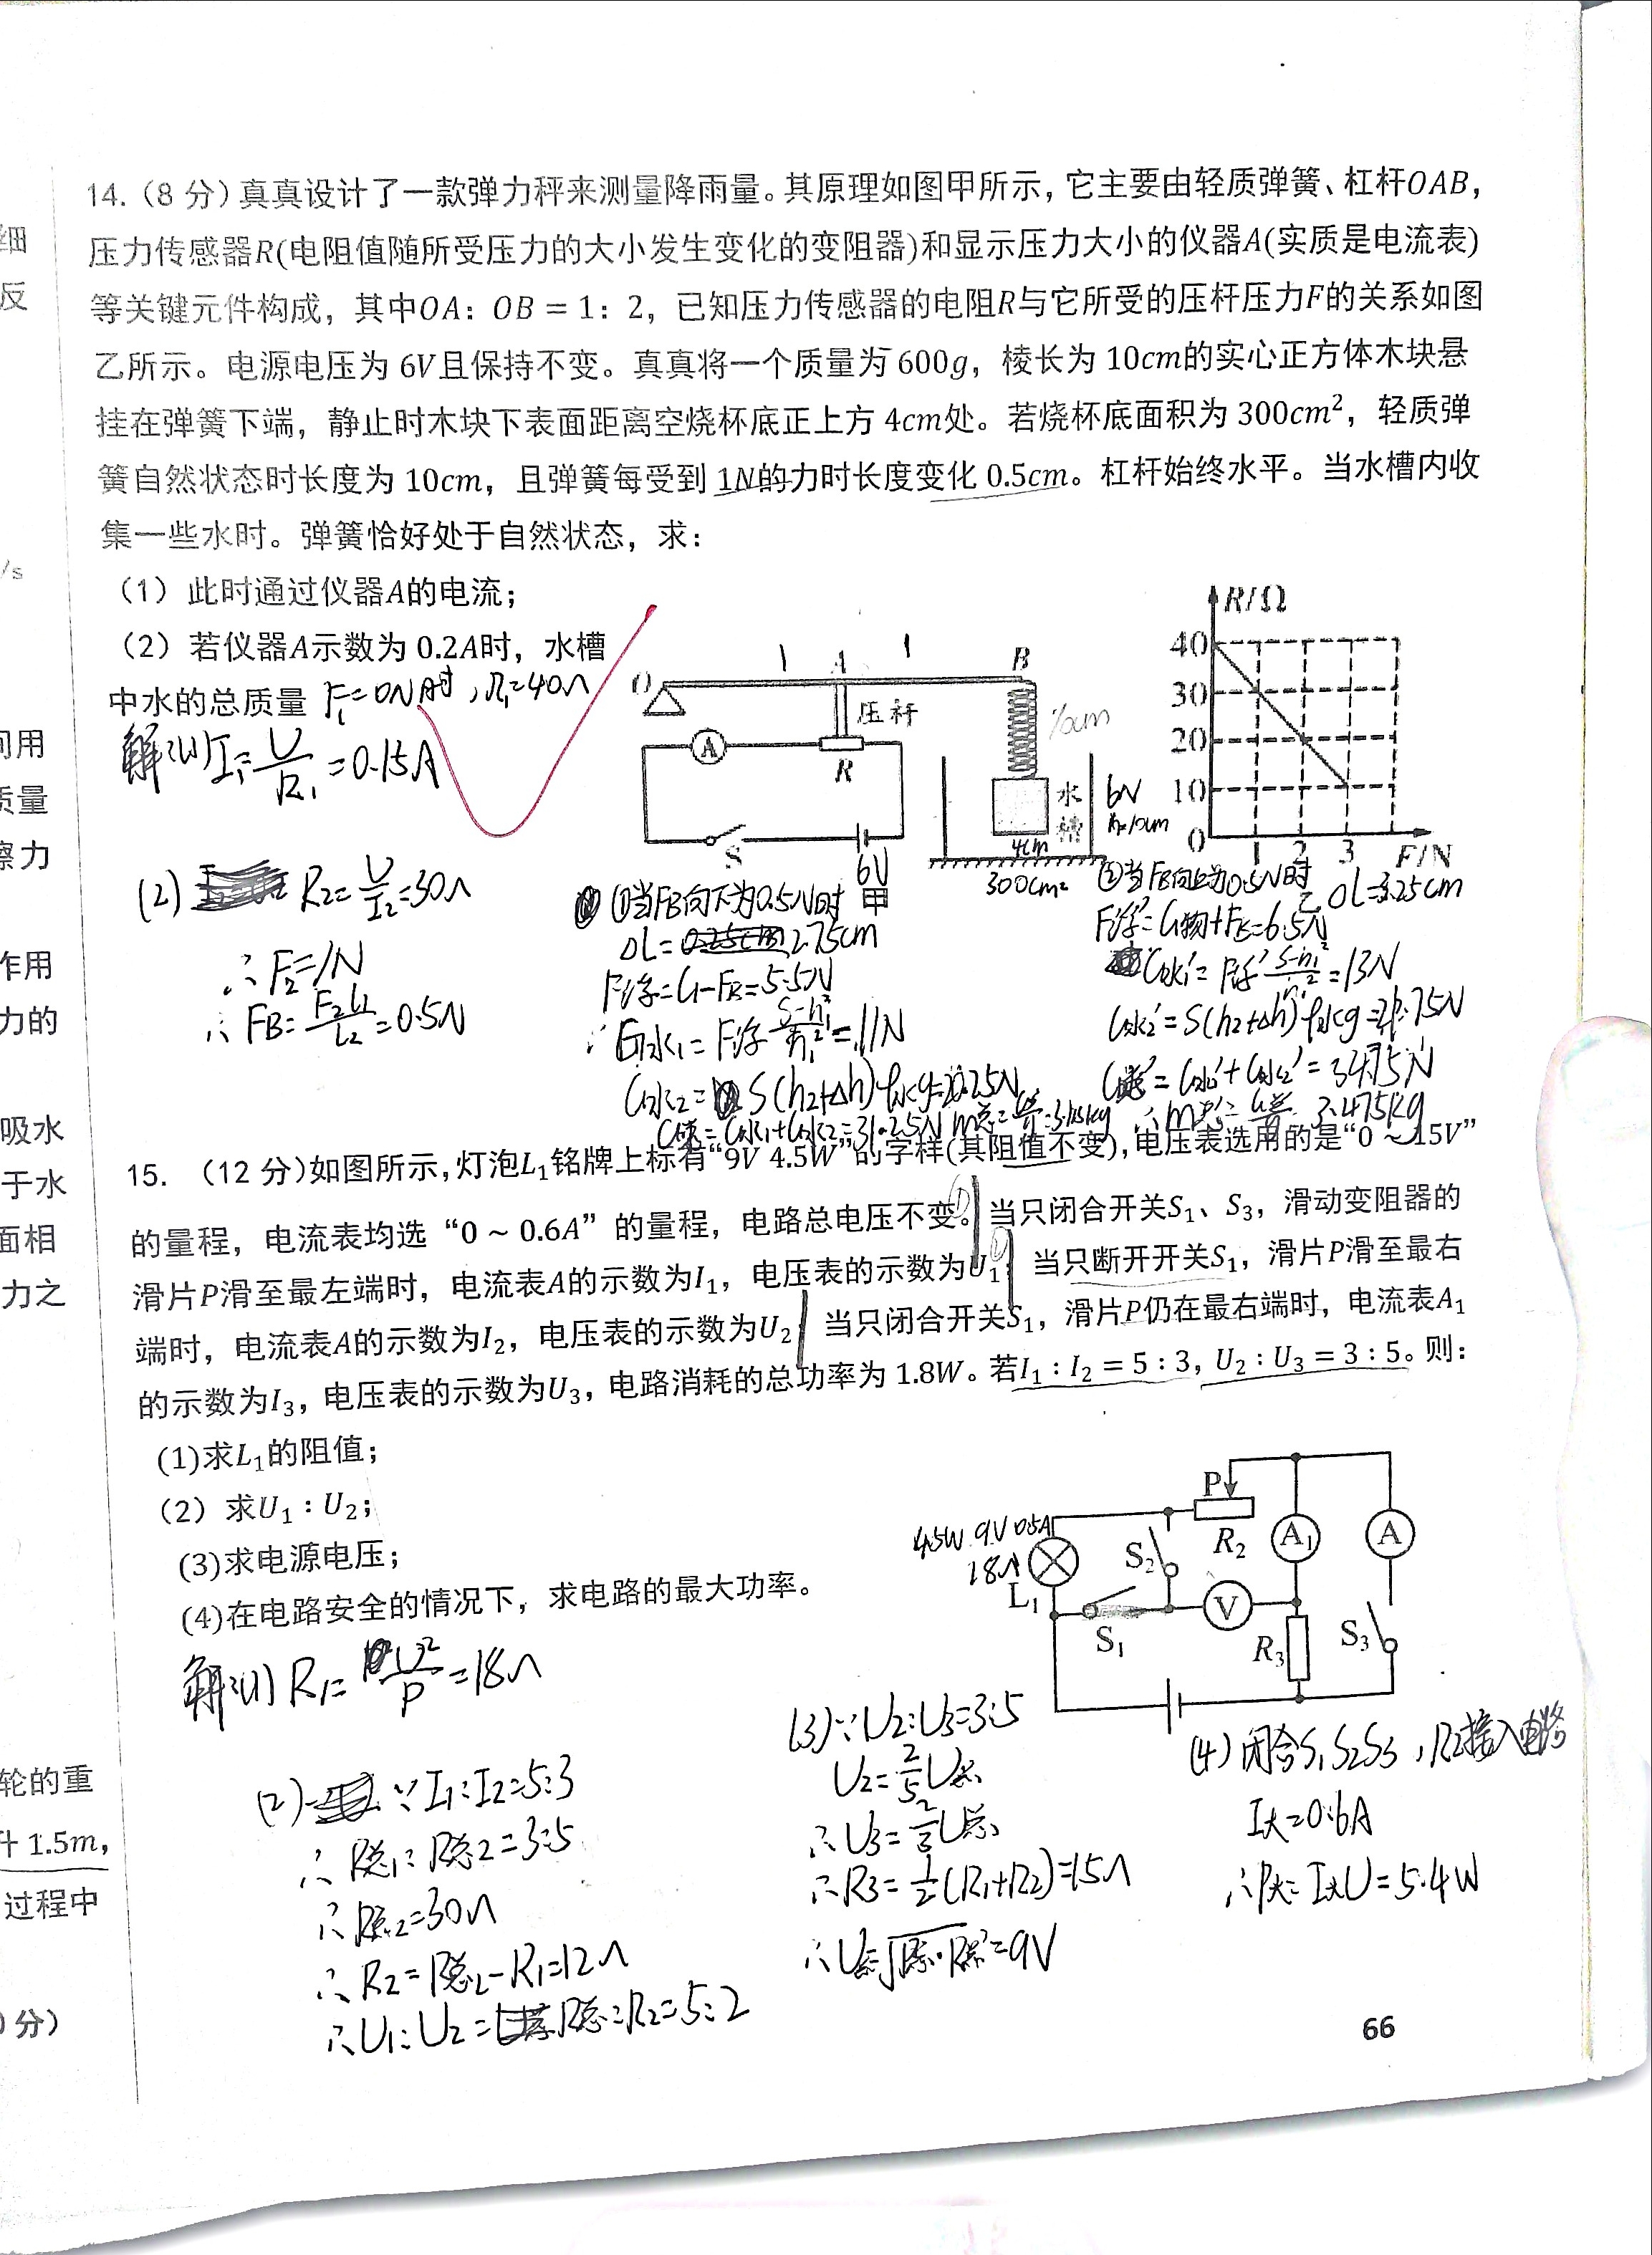 细
反
/s
间用
质量
察力
作用
力的
吸水
于水
面相
力之
轮的重
升 1.5m,
过程中
分）
14.（8 分）真真设计了一款弹力秤来测量降雨量。其原理如图甲所示，它主要由轻质弹簧、杠杆OAB，
压力传感器R(电阻值随所受压力的大小发生变化的变阻器)和显示压力大小的仪器A(实质是电流表)
等关键元件构成，其中OA：OB = 1：2，已知压力传感器的电阻R与它所受的压杆压力F的关系如图
乙所示。电源电压为 6V且保持不变。真真将一个质量为 600g，棱长为 10cm的实心正方体木块悬
挂在弹簧下端，静止时木块下表面距离空烧杯底正上方 4cm处。若烧杯底面积为 300cm²，轻质弹
簧自然状态时长度为 10cm，且弹簧每受到 1N的力时长度变化 0.5cm。杠杆始终水平。当水槽内收
集一些水时。弹簧恰好处于自然状态，求：
（1）此时通过仪器A的电流；
（2）若仪器A示数为 0.2A时，水槽
中水的总质量 F₁=0N时，R₁=40Ω
解:(1) I₁=U/R₁=0.15A
(2) R₂=U/I₂=30Ω
∴F₂=1N
∴FB=F₂L₁/L₂=0.5N
O 1 A 1 B
压杆
10cm
A R
水槽
6N
h=10cm
S 6V 4cm
甲 300cm²
R/Ω
40
30
20
10
0 1 2 3 F/N
乙
①当FB向下为0.5N时
ΔL=2.75cm
F浮=G-FB=5.5N
∴G水₁=F浮 S-h₁²/h₁²=11N
G水₂=S(h₂+Δh)ρ水g=20.25N
G总=G水₁+G水₂=31.25N m总=G总/g=3.125kg
②当FB向上为0.5N时
ΔL=3.25cm
F浮'=G物+FB=6.5N
G水₁'=F浮' S-h₁²/h₁²=13N
G水₂'=S(h₂+Δh)'ρ水g=21.75N
G总'=G水₁'+G水₂'=34.75N
∴m总'=G总/g=3.475kg
15. （12 分)如图所示,灯泡L₁铭牌上标有“9V 4.5W”的字样(其阻值不变),电压表选用的是“0 ~ 15V”
的量程，电流表均选“0 ~ 0.6A”的量程，电路总电压不变。当只闭合开关S₁、S₃，滑动变阻器的
滑片P滑至最左端时，电流表A的示数为I₁，电压表的示数为U₁；当只断开开关S₁，滑片P滑至最右
端时，电流表A的示数为I₂，电压表的示数为U₂；当只闭合开关S₁，滑片P仍在最右端时，电流表A₁
的示数为I₃，电压表的示数为U₃，电路消耗的总功率为 1.8W。若I₁：I₂ = 5：3, U₂：U₃ = 3：5。则：
(1)求L₁的阻值；
（2）求U₁：U₂；
(3)求电源电压；
(4)在电路安全的情况下，求电路的最大功率。
4.5W 9V 0.5A
18Ω
P
R₂ A₁ A
L₁ S₂
S₁ V R₃ S₃
解:(1) R₁=U²/P=18Ω
(2) ∵I₁:I₂=5:3
∴R总₁:R总₂=3:5
∴R总₂=30Ω
∴R₂=R总₂-R₁=12Ω
∴U₁:U₂=R总:R₂=5:2
(3)∵U₂:U₃=3:5
U₂=2/5U总
∴U₃=2/3U总
∴R₃=1/2(R₁+R₂)=15Ω
∴U总=√P总·R总=9V
(4) 闭合S₁S₂S₃，R₂接入电路
I大=0.6A
∴P大=I大U=5.4W
66